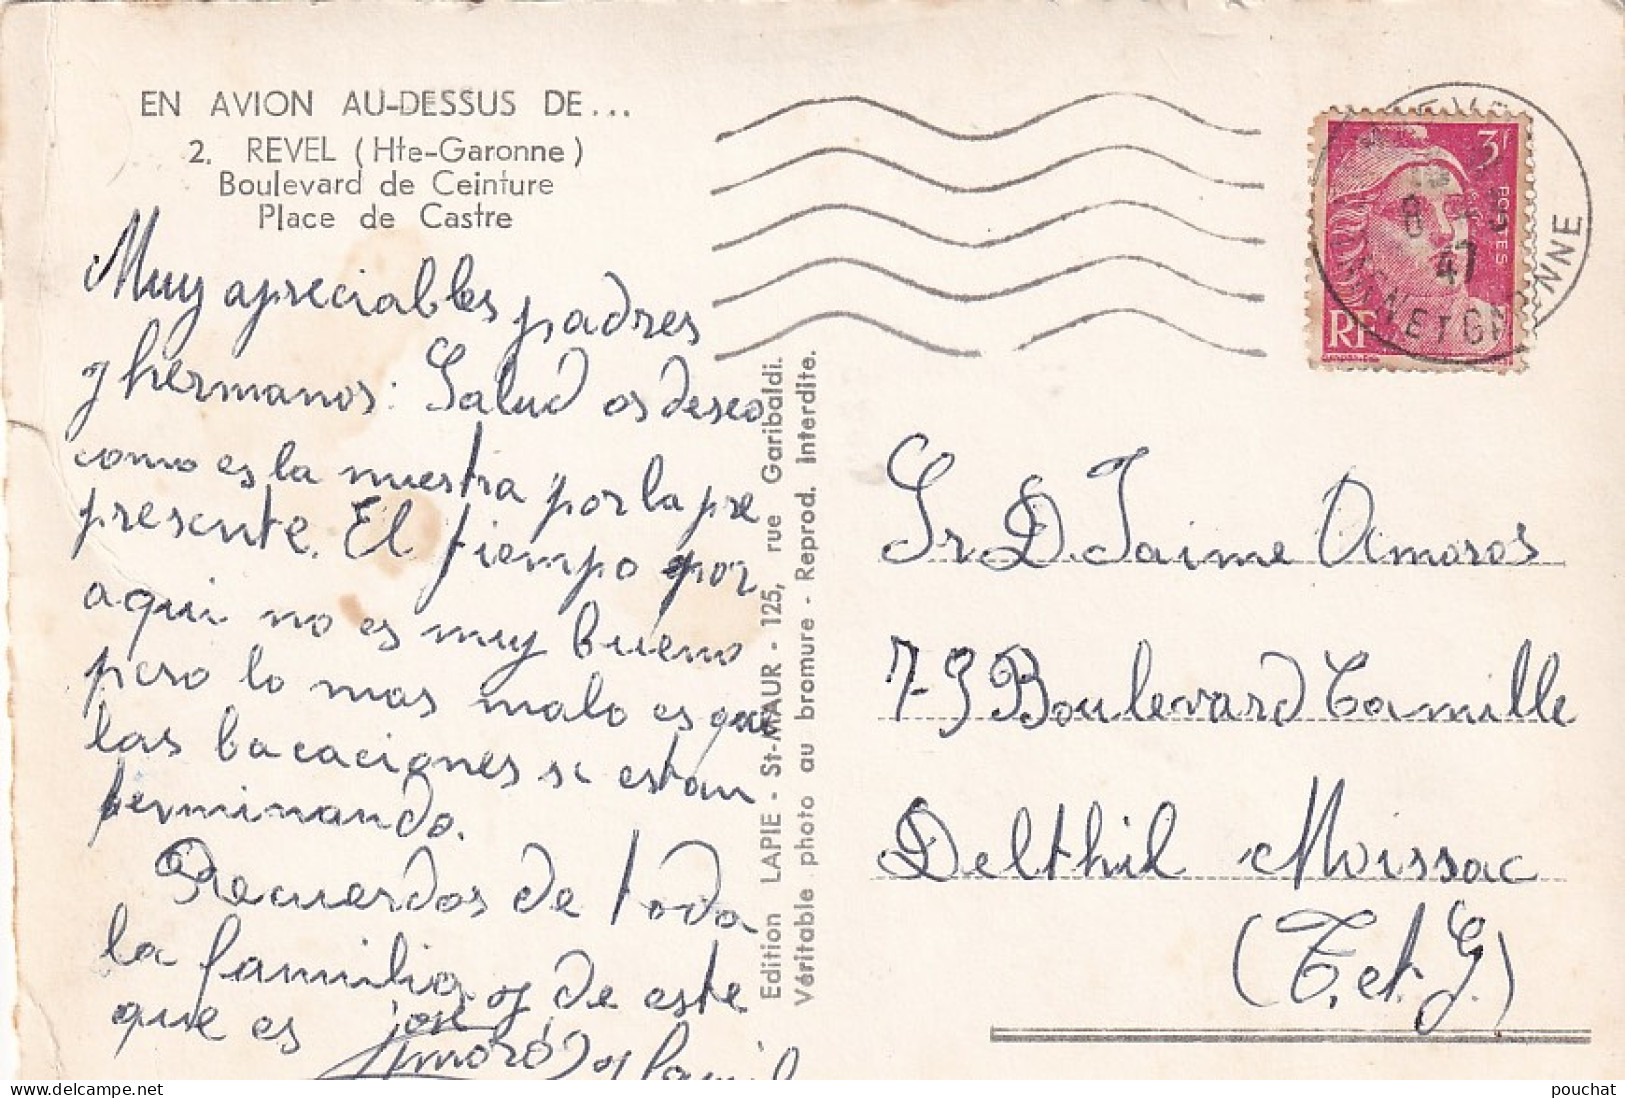 EN AVION AU-DESSUS DE...
2. REVEL (Hte-Garonne)
Boulevard de Ceinture
Place de Castre
Muy apreciables padres
y hermanos: Salud os deseo
como es la nuestra por la pre
presente. El tiempo por
aqui no es muy bueno
pero lo mas malo es que
las bacaciones se estan
terminando.
Recuerdos de toda
la familia y de este
que es José
Amorós y famil
Edition LAPIE - St-MAUR - 125, rue Garibaldi.
Véritable photo au bromure - Reprod. Interdite.
3f
POSTES
RF
8 - 5
47
ET GARONNE
Sr. D. Jaime Amoros
79 Boulevard Camille
Delthil Moissac
(T. et. G.)
delcampe.net
pouchat